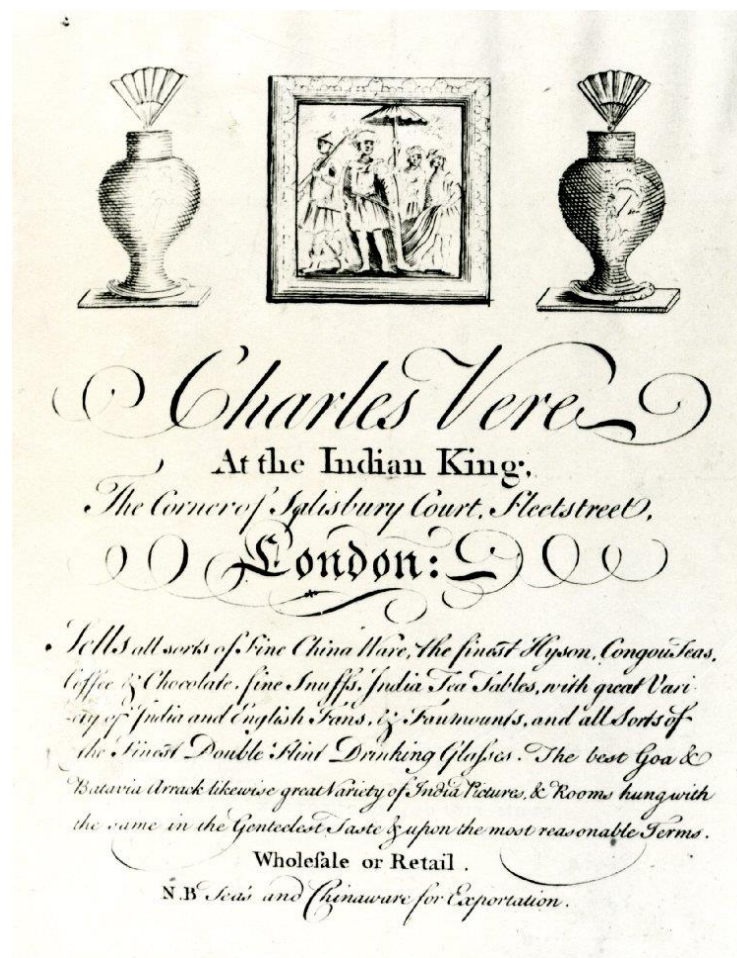 Charles Vere
At the Indian King,
The Corner of Salisbury Court, Fleetstreet,
London:
Sells all sorts of Fine China Ware, the finest Hyson, Congou Teas,
Coffee & Chocolate, fine Snuffs, India Tea Tables, with great Vari-
ety of India and English Fans, & Fanmounts, and all Sorts of
the Finest Double Flint Drinking Glaſses. The best Goa &
Batavia Arrack likewise great Variety of India Pictures, & Rooms hung with
the same in the Genteelest Taste & upon the most reasonable Terms.
Wholeſale or Retail.
N.B Teas and Chinaware for Exportation.